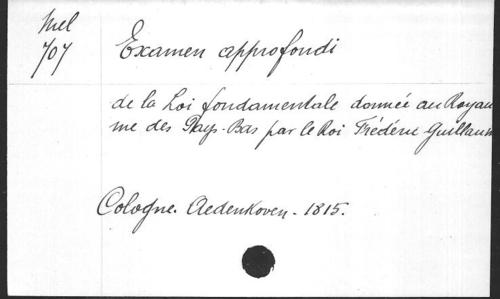 Mel
707
Examen approfondi
de la Loi fondamentale donnée au Royau
me des Pays-Bas par le Roi Frédéric Guillaum
Cologne. Aedenkoven - 1815.